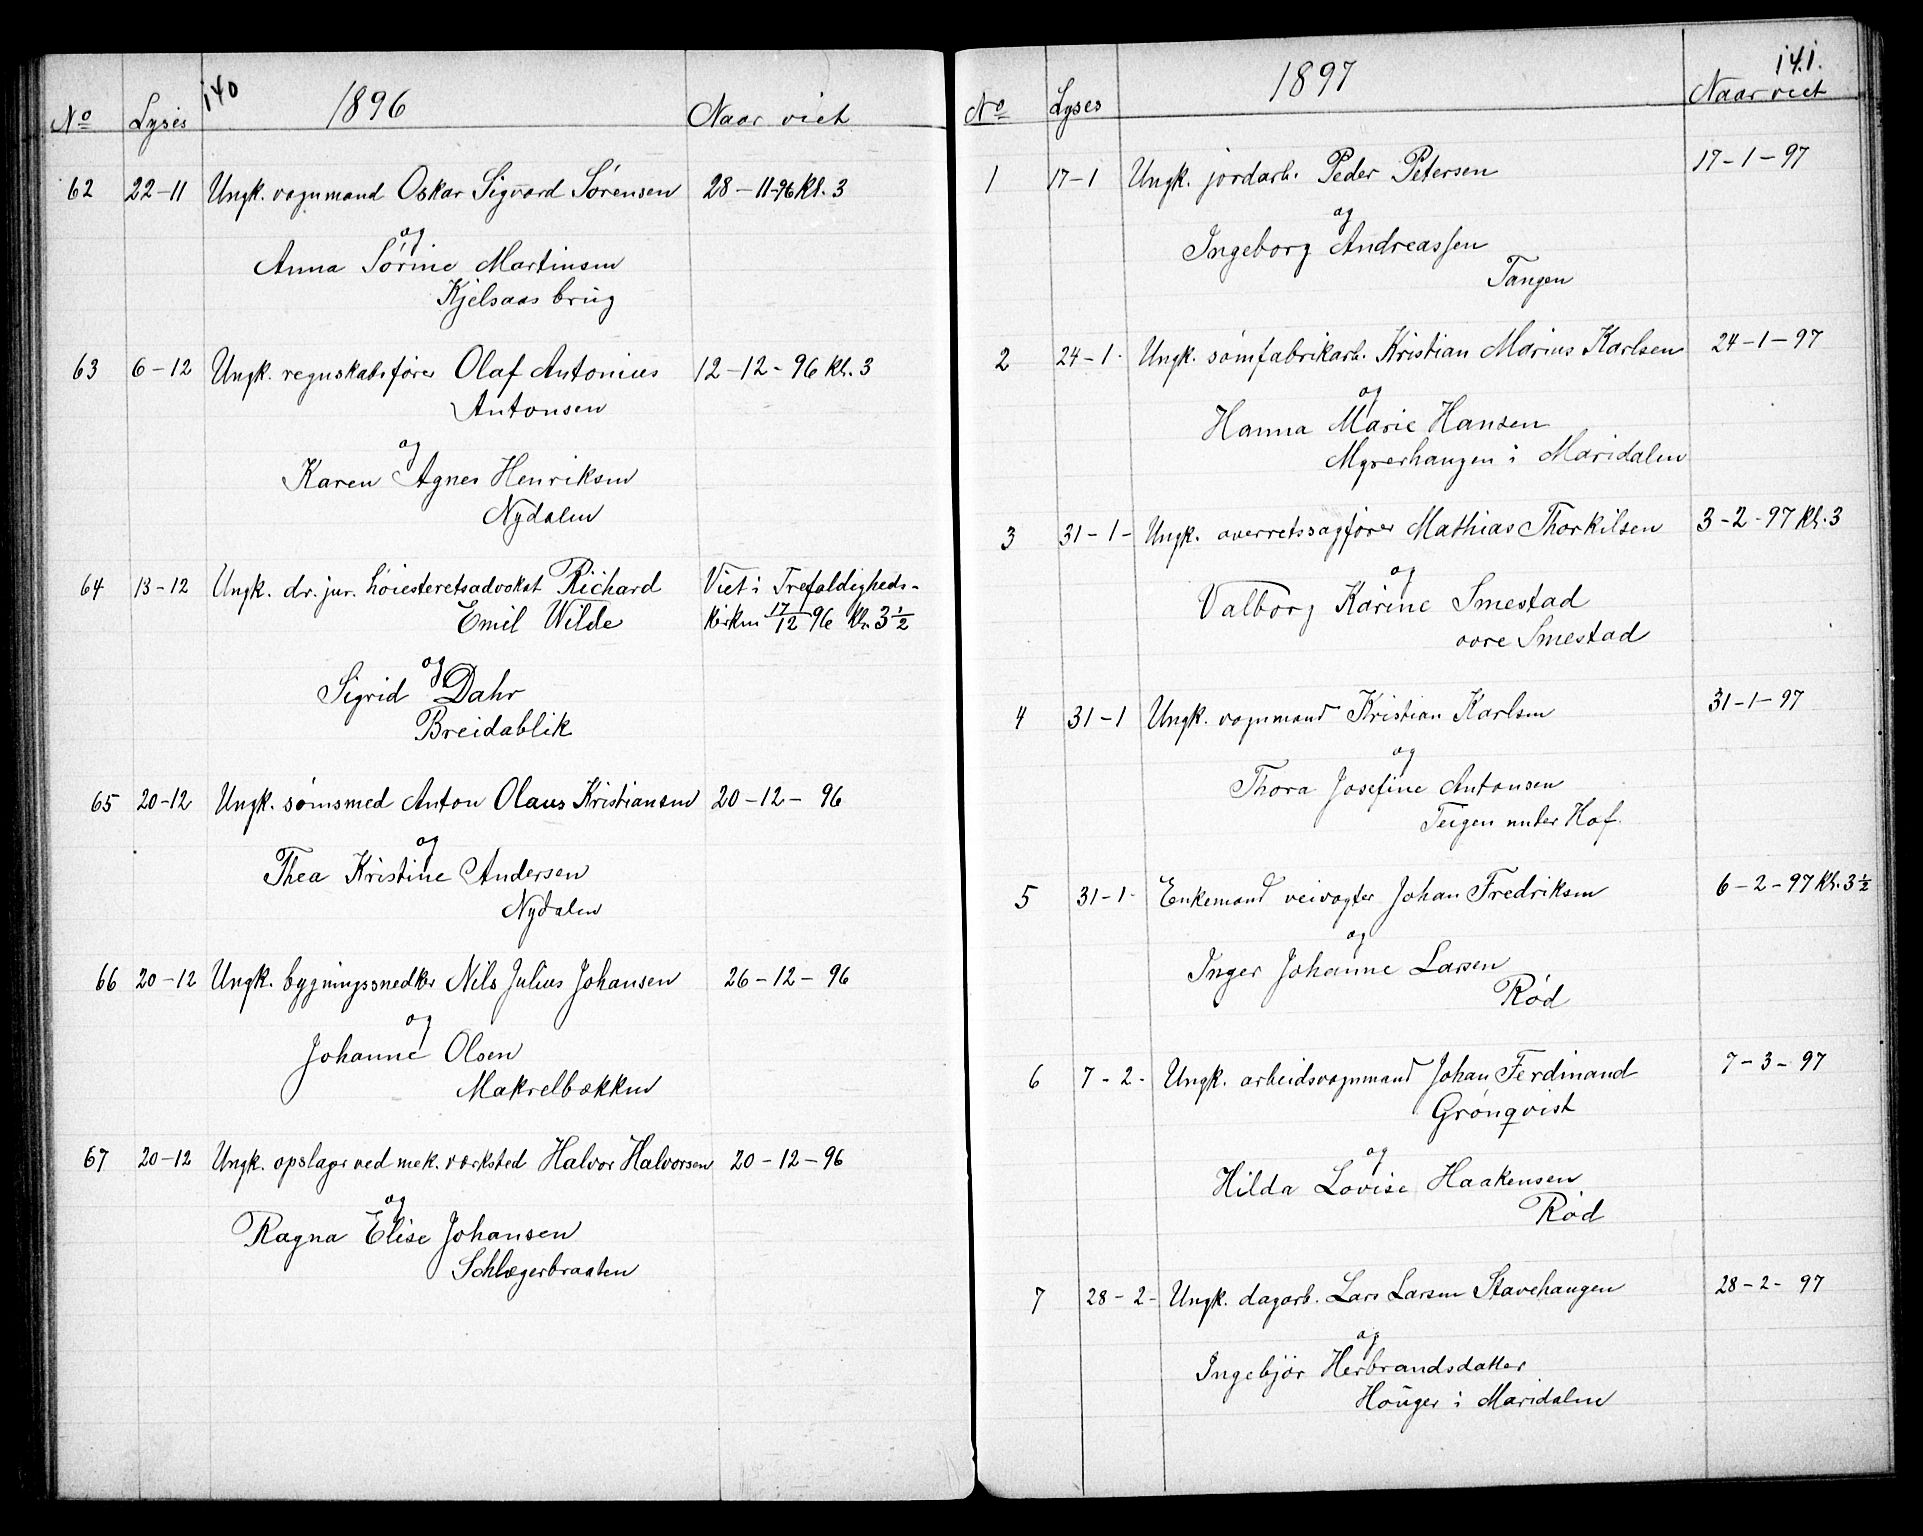 140
1896
No Lyses Naar viet
62 22-11 Ungk. vognmand Oskar Sigvard Sørensen 28-11-96 Kl. 3
og
Anna Sørine Martinsen
Kjelsaas brug
63 6-12 Ungk. regnskabsfører Olaf Antonius 12-12-96 Kl. 3
Antonsen
og
Karen Agnes Henriksen
Nydalen
64 13-12 Ungk. dr. jur. høiesteretsadvokat Richard Viet i Trefoldigheds-
Emil Wilde kirken 17/12 96 Kl. 3 1/2
og
Sigrid Dahr
Breidablik
65 20-12 Ungk. sømsmed Anton Olaus Kristiansen 20-12-96
og
Thea Kristine Andersen
Nydalen
66 20-12 Ungk. bygningssnedker Nils Julius Johansen 26-12-96
og
Johanne Olsen
Makrelbækken
67 20-12 Ungk. opslager ved mek. værksted Halvor Halvorsen 20-12-96
og
Ragna Elise Johansen
Schlægerbraaten
141.
1897
No Lyses Naar viet
1 17-1 Ungk. jordarb. Peder Petersen 17-1-97
og
Ingeborg Andreassen
Tangen
2 24-1- Ungk. sømfabrikarb. Kristian Marius Karlsen 24-1-97
og
Hanna Marie Hansen
Myrerhaugen i Maridalen
3 31-1- Ungk. overretssagfører Mathias Thorkilsen 3-2-97 Kl. 3
og
Valborg Karine Smestad
øvre Smestad
4 31-1 Ungk. vognmand Kristian Karlsen 31-1-97
og
Thora Josefine Antonsen
Teigen under Hof.
5 31-1- Enkemand veivogter Johan Fredriksen 6-2-97 Kl. 3 1/2
og
Inger Johanne Larsen
Rød
6 7-2- Ungk. arbeidsvognmand Johan Ferdinand 7-3-97
Grønqvist
og
Hilda Lovise Haakensen
Rød
7 28-2- Ungk. dagarb. Lars Larsen Stavehaugen 28-2-97
og
Ingebjør Herbrandsdatter
Hønger i Maridalen